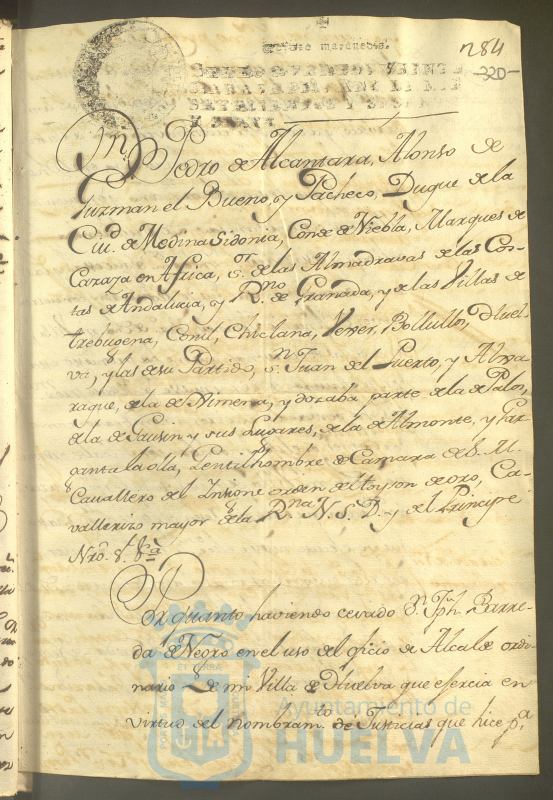 284
320
Dn. Pedro de Alcantara, Alonso de
Guzman el Bueno, y Pacheco, Duque de la
Ciud. de Medina Sidonia, Conde de Niebla, Marques de
Cazaza en Africa, Sor. de las Almadravas de las Cos-
tas de Andalucia, y Rno. de Granada, y de las Villas de
trebugena, Conil, Chiclana, Vexer, Bollullos, Huel-
va, y las de su Partido, Sn. Juan del Puerto, y Alxa
raque, de la de Ximena, y dozaba parte de la de Palos,
de la de Gausin y sus Lugares, de la de Almonte, y Gar-
ganta la olla, Gentilhombre de Camara de S. M.
Cavallero del Insigne orden del toyson de oro, Ca-
vallerizo mayor de la Rna. N. S. y del Principe
Nro. Sr. &a
Por quanto haviendo cesado Dn. Jph. Barre-
da de Negro en el uso del oficio de Alcalde ordi-
nario de mi Villa de Huelva que exercia en
virtud del nombramto. de Justicias que hice pa.
Ayuntamiento de
HUELVA